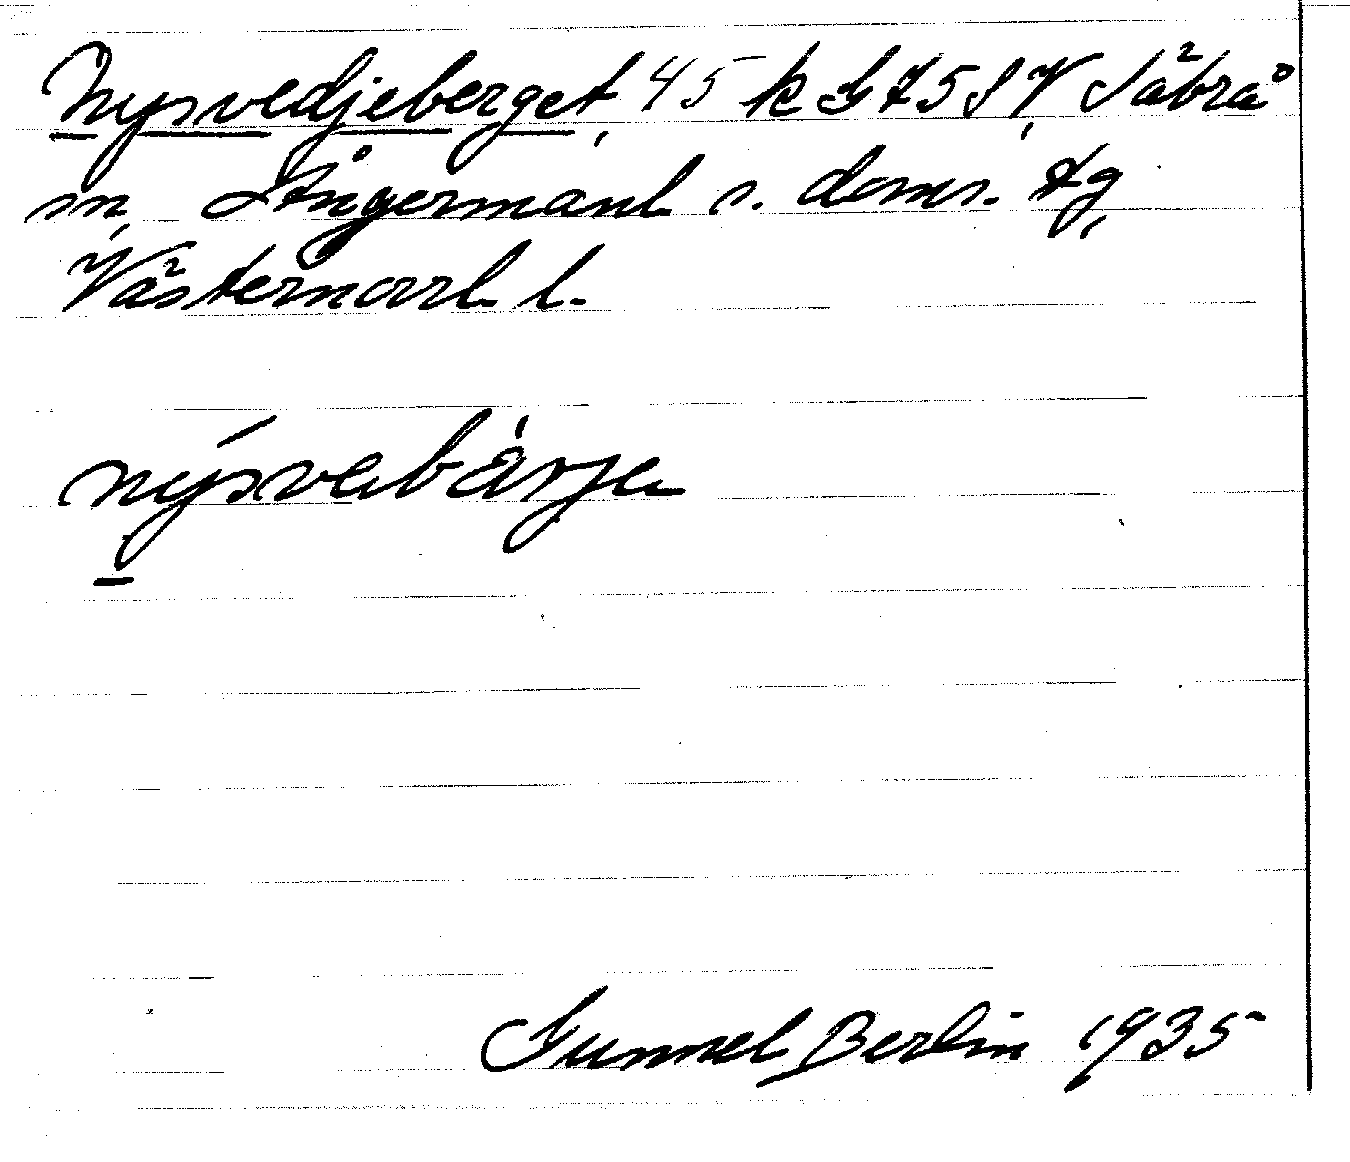 Nysvedjeberget, 45 k GK 75 S V, Säbrå
sn, Ångermanl. s. doms. tg,
Västernorrl. l.
nýsvebärje
Gunnel Berlin 1935